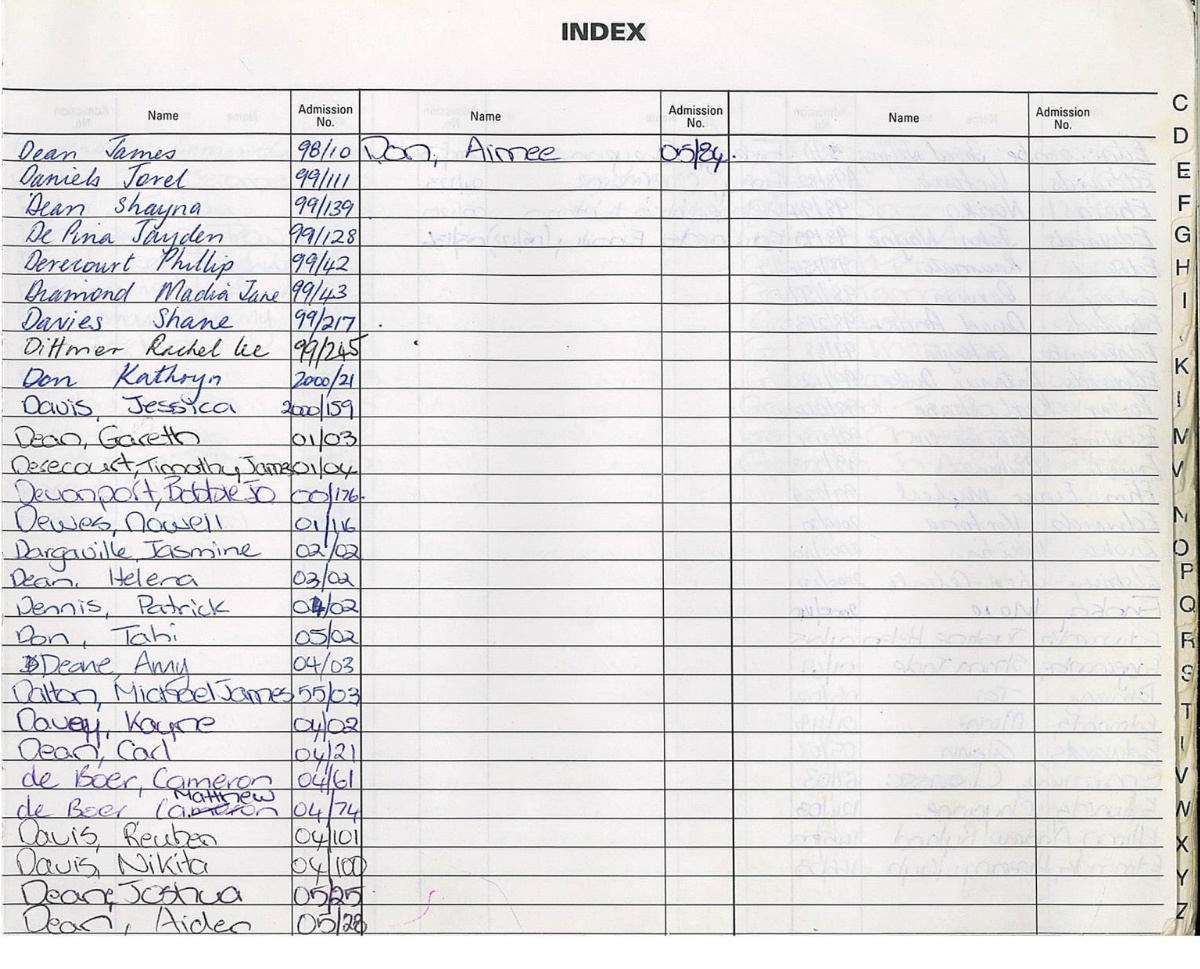 INDEX
Name Admission No. Name Admission No. Name Admission No.
Dean James 98/10 Don, Aimee 05/84.
Daniels Jorel 99/111
Dean Shayna 99/139
De Pina Jayden 99/128
Derecourt Phillip 99/42
Dramond Madia Jane 99/43
Davies Shane 99/217
Dittmer Rachel lee 99/245
Don Kathryn 2000/21
Davis, Jessica 2000/159
Dean, Gareth 01/03
Derecourt, Timothy, James 01/04
Devonport, Bobbie Jo 00/176.
Dewes, Nowell 01/116
Dargaville, Jasmine 02/02
Dean, Helena 03/02
Dennis, Patrick 04/02
Don, Tahi 05/02
Deane, Amy 04/03
Dalton, Michael James 55/03
Davey, Kayne 04/02
Dean, Carl 04/21
de Boer, Cameron 04/61
de Boer Matthew 04/74
Davis, Reuben 04/101
Davis, Nikita 04/100
Dean, Joshua 05/25
Dean, Aiden 05/28
C
D
E
F
G
H
I
J
K
M
N
O
P
Q
R
S
T
V
W
X
Y
Z